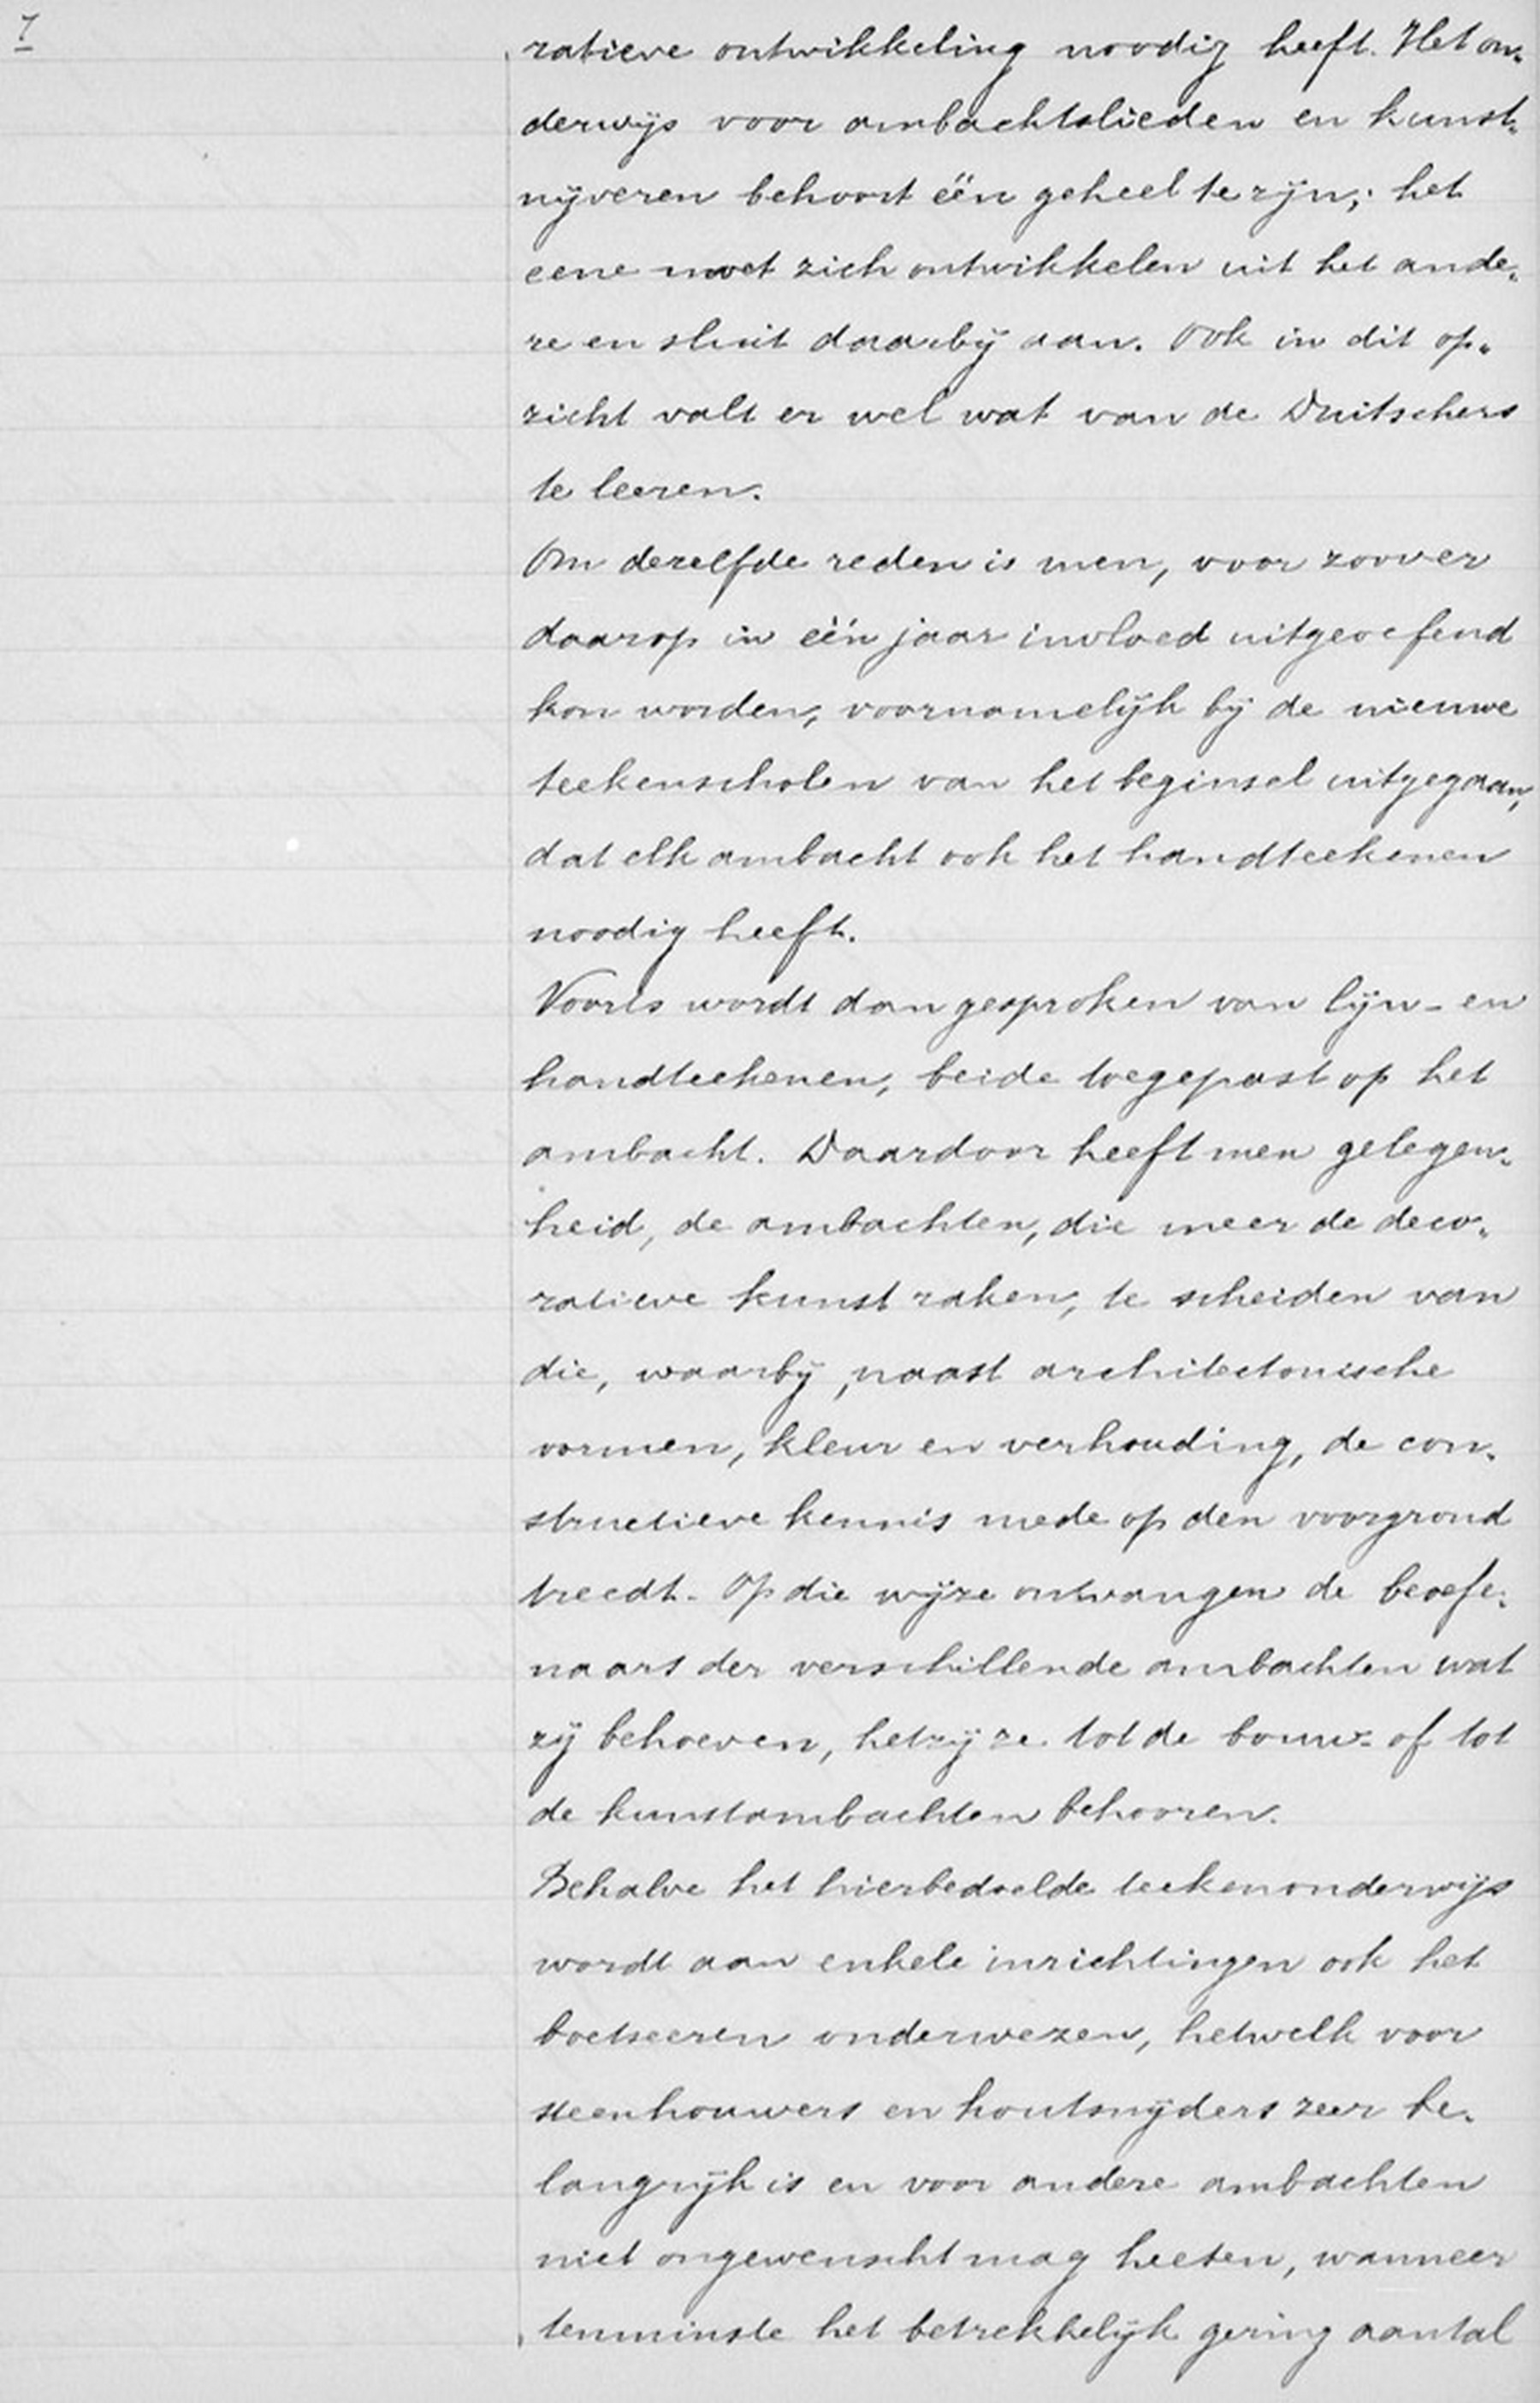 7
ratieve ontwikkeling noodig heeft. Het on-
derwijs voor ambachtslieden en kunst-
nijveren behoort één geheel te zijn; het
eene moet zich ontwikkelen uit het ande-
re en sluit daarbij aan. Ook in dit op-
zicht valt er wel wat van de Duitschers
te leeren.
Om dezelfde reden is men, voor zoover
daarop in één jaar invloed uitgeoefend
kon worden, voornamelijk bij de nieuwe
teekenscholen van het beginsel uitgegaan,
dat elk ambacht ook het handteekenen
noodig heeft.
Voorts wordt dan gesproken van lijn- en
handteekenen, beide toegepast op het
ambacht. Daardoor heeft men gelegen-
heid, de ambachten, die meer de deco-
ratieve kunst raken, te scheiden van
die, waarbij, naast architectonische
vormen, kleur en verhouding, de con-
structieve kennis mede op den voorgrond
treedt. Op die wijze ontvangen de beoefe-
naars der verschillende ambachten wat
zij behoeven, hetzij ze tot de bouw- of tot
de kunstambachten behooren.
Behalve het hierbedoelde teekenonderwijs
wordt aan enkele inrichtingen ook het
boetseeren onderwezen, hetwelk voor
steenhouwers en houtsnijders zeer be-
langrijk is en voor andere ambachten
niet ongewenscht mag heeten, wanneer
tenminste het betrekkelijk gering aantal